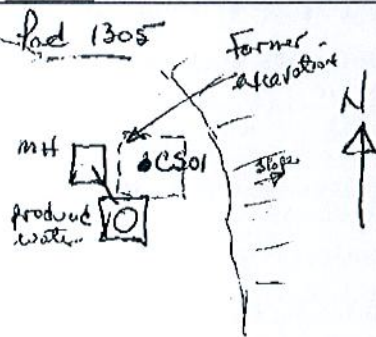 Pad 1305
Former
excavation
N
MH
CS01
Slope
produced
water